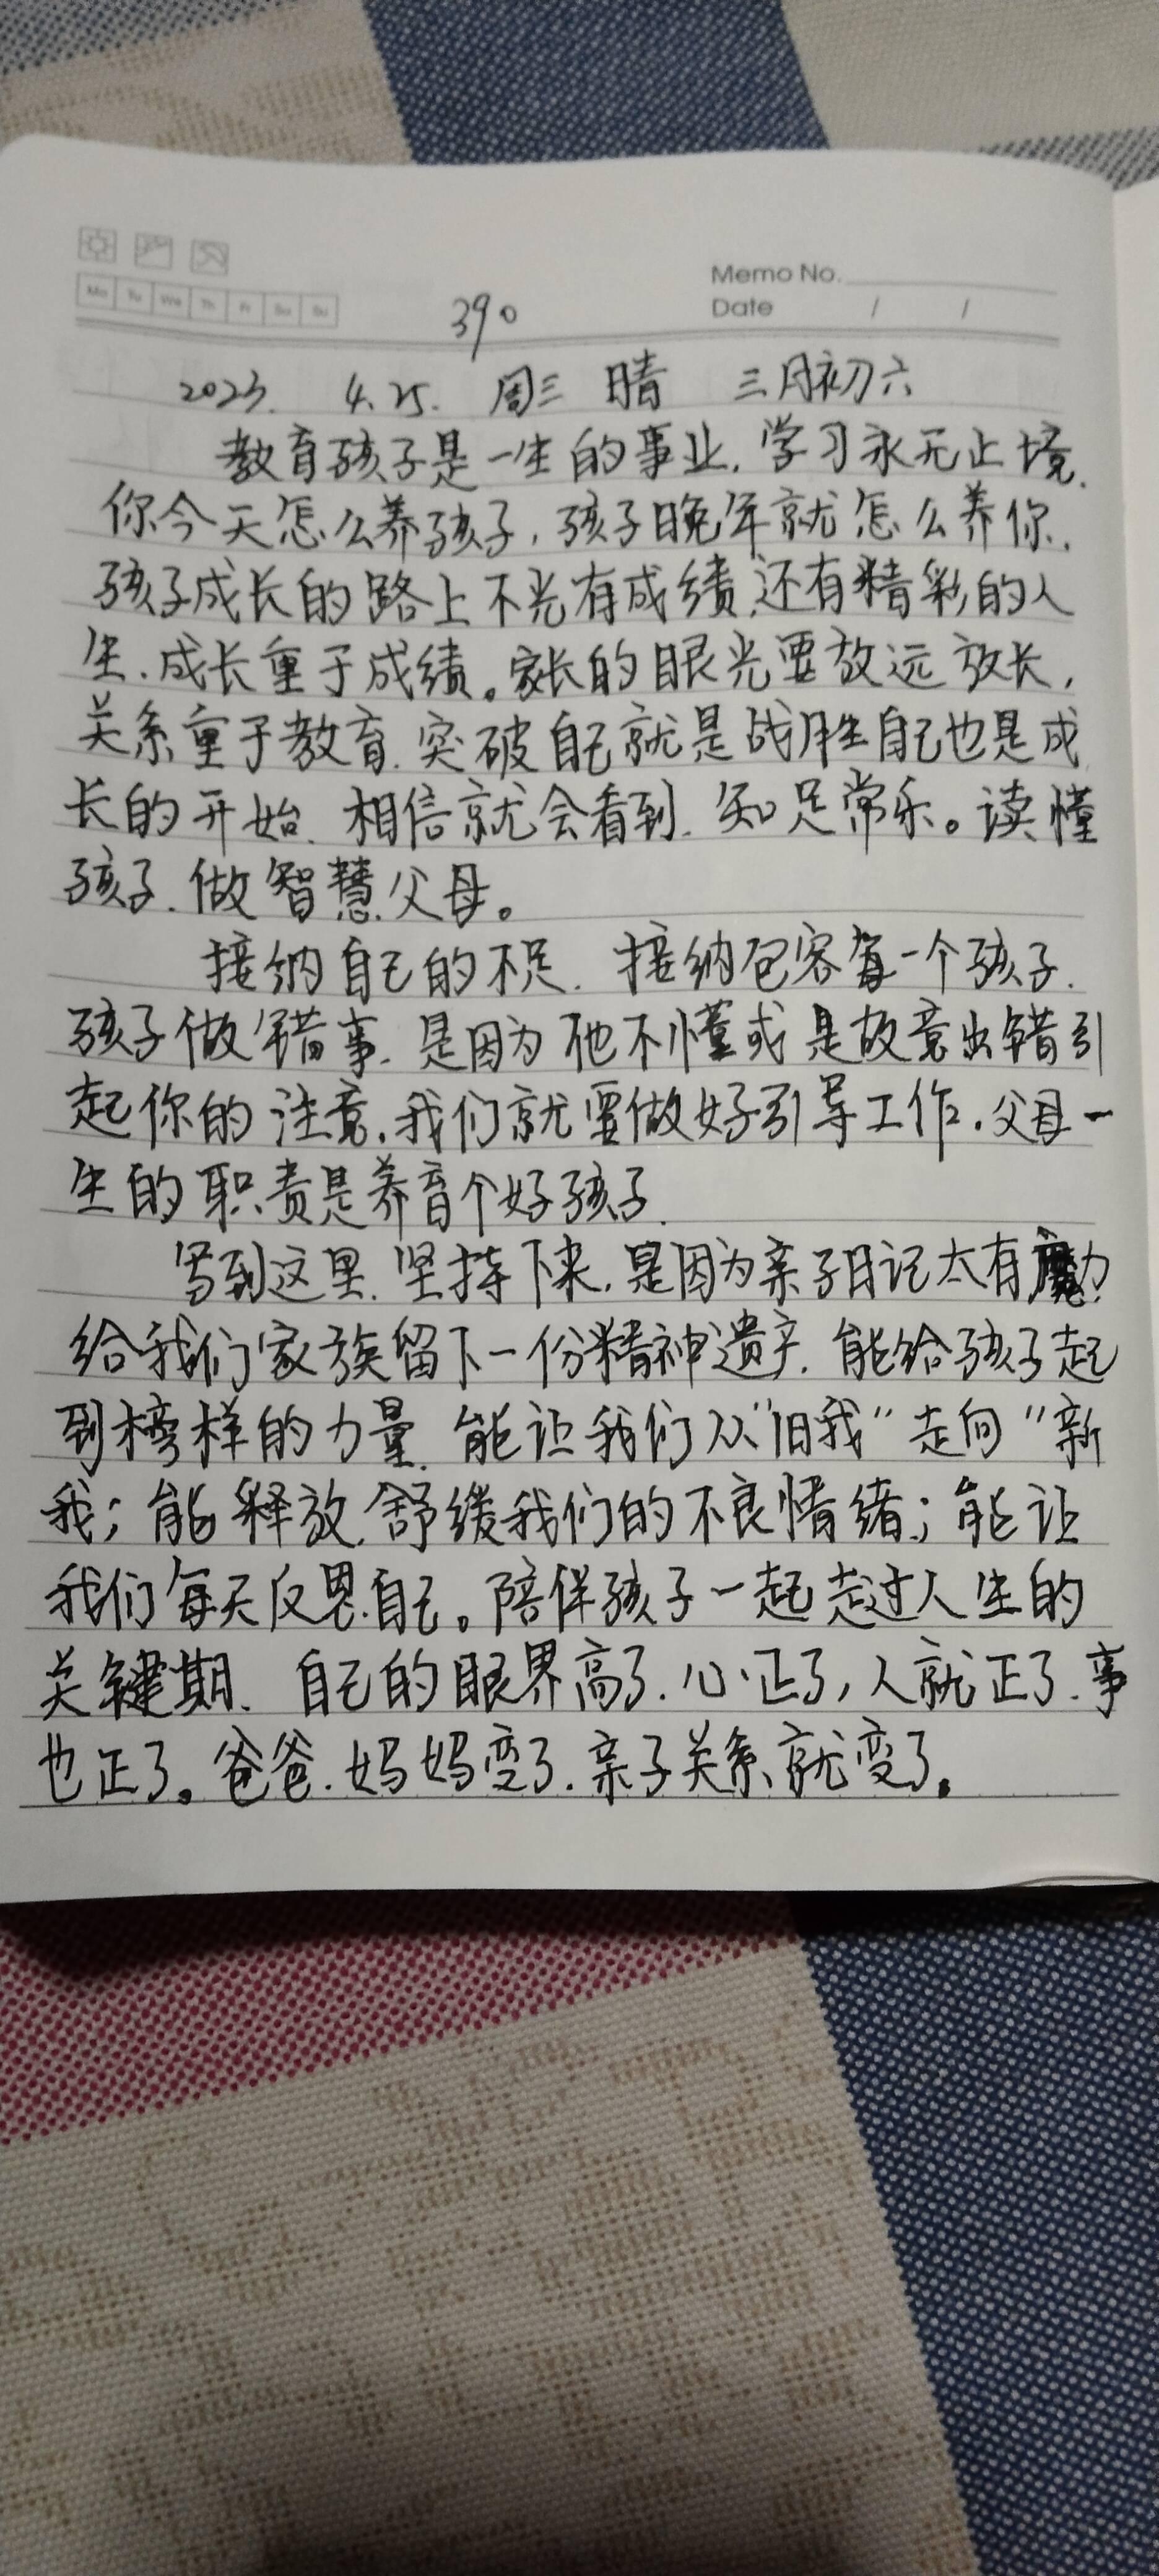 Mo Tu We Th Fr Sa Su
Memo No.
Date / /
390
2023. 4.25. 周三 晴 三月初六
教育孩子是一生的事业,学习永无止境.
你今天怎么养孩子,孩子晚年就怎么养你.
孩子成长的路上不光有成绩,还有精彩的人
生.成长重于成绩。家长的眼光要放远放长,
关系重于教育.突破自己就是战胜自己也是成
长的开始.相信就会看到.知足常乐。读懂
孩子.做智慧父母。
接纳自己的不足.接纳包容每一个孩子.
孩子做错事.是因为他不懂或是故意出错引
起你的注意.我们就要做好引导工作.父母一
生的职责是养育个好孩子.
写到这里.坚持下来.是因为亲子日记太有魔力.
给我们家族留下一份精神遗产.能给孩子起
到榜样的力量.能让我们从"旧我"走向"新
我;能释放.舒缓我们的不良情绪;能让
我们每天反思自己。陪伴孩子一起走过人生的
关键期.自己的眼界高了.心正了,人就正了.事
也正了。爸爸.妈妈变了.亲子关系就变了。